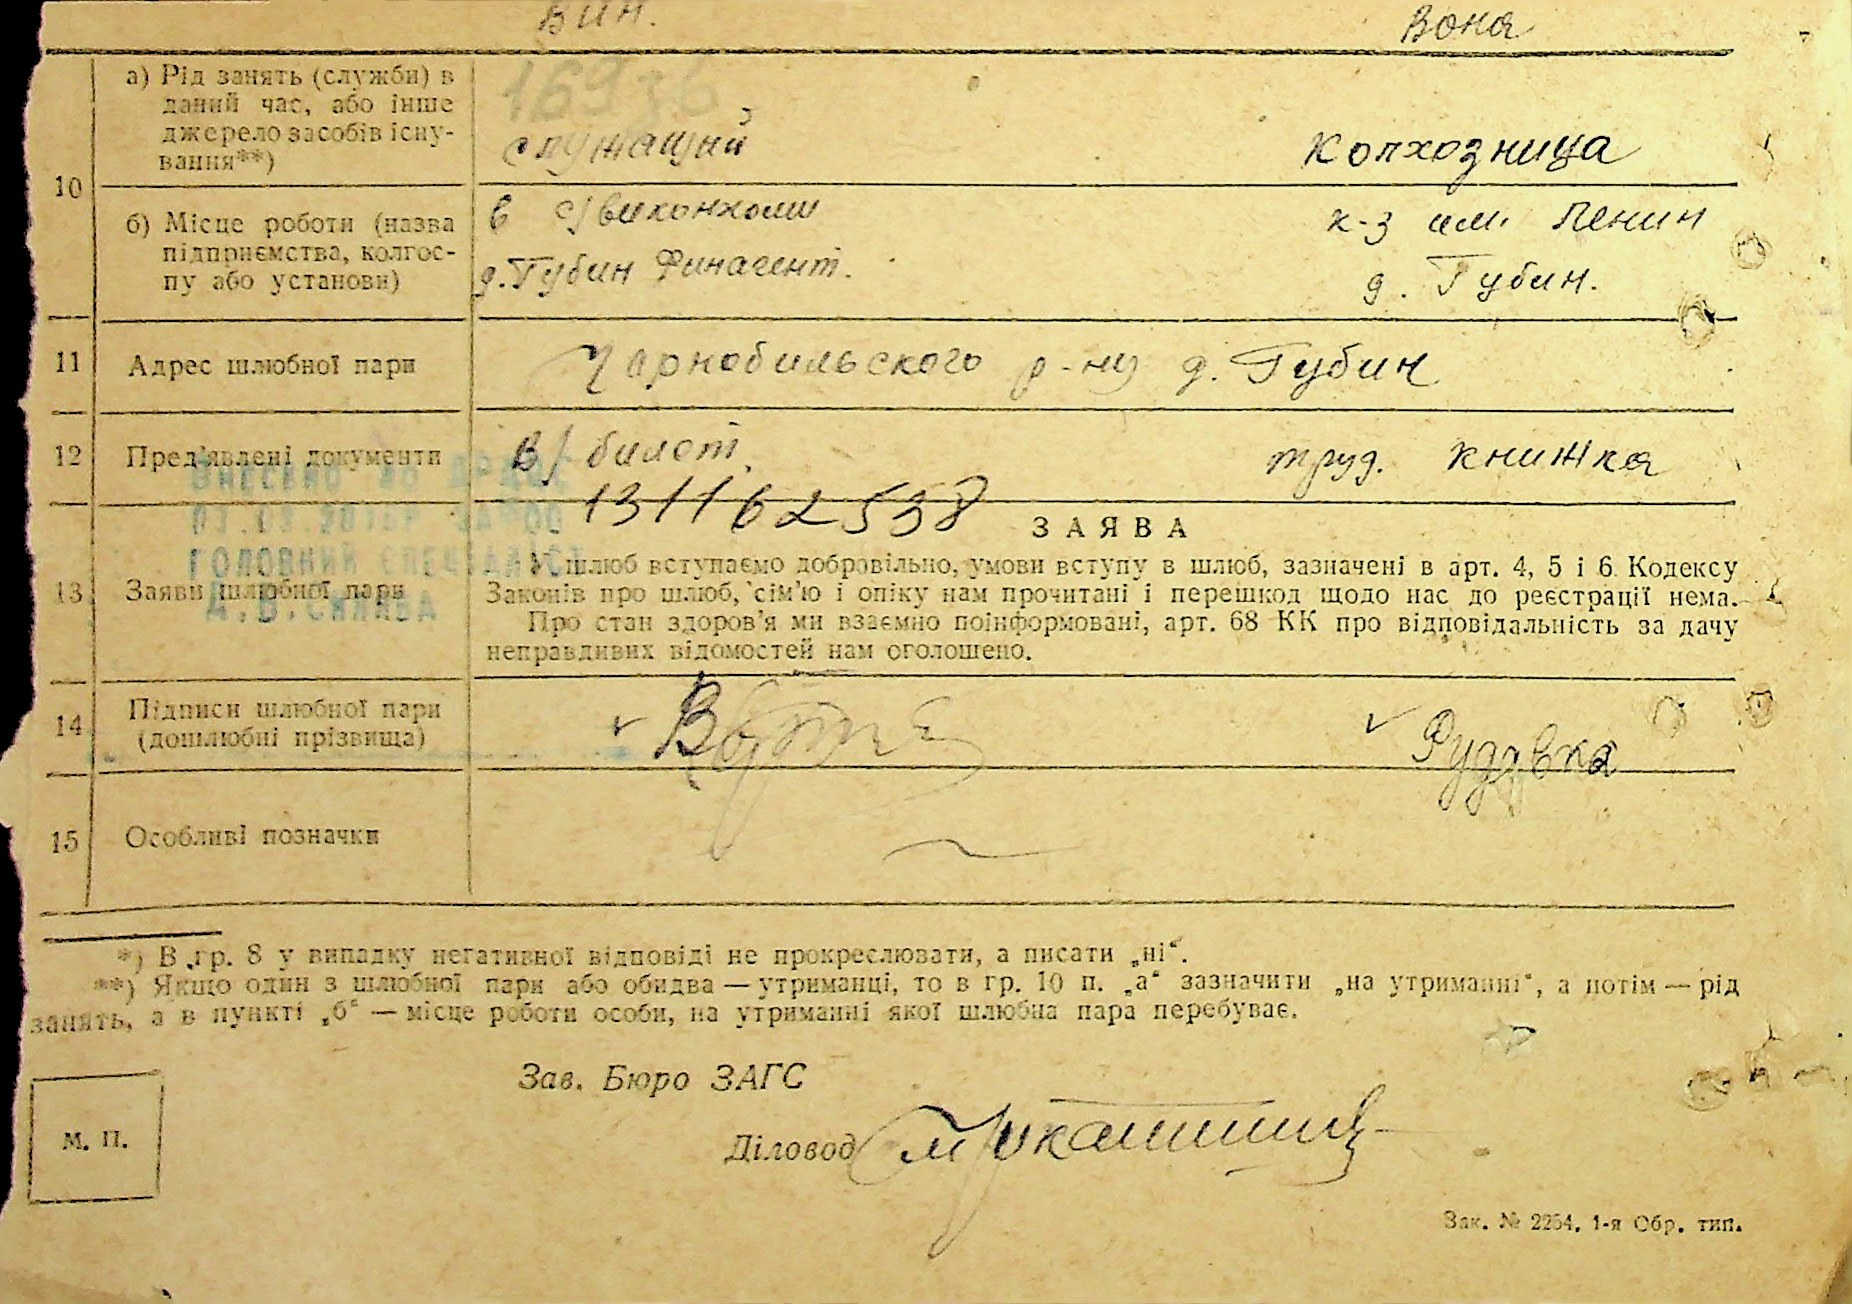 Вин. Вона
10
а) Рід занять (служби) в
даний час, або інше
джерело засобів існу-
вання**)
служащий Колхозница
б) Місце роботи (назва
підприємства, колгос-
пу або установи)
в
д. Губин Финагент.
к-з им. Ленин
д. Губин.
11 Адрес шлюбної пари
р-ну д. Губин
12 Пред'явлені документи
в/билет. труд. книжка
131162538
ЗАЯВА
13 Заяви шлюбної пари
У шлюб вступаємо добровільно, умови вступу в шлюб, зазначені в арт. 4, 5 і 6 Кодексу
Законів про шлюб, сім'ю і опіку нам прочитані і перешкод щодо нас до реєстрації нема.
Про стан здоров'я ми взаємно поінформовані, арт. 68 КК про відповідальність за дачу
неправдивих відомостей нам оголошено.
ГОЛОВНИЙ СПЕЦІАЛІСТ
14 Підписи шлюбної пари
(дошлюбні прізвища)
15 Особливі позначки
*) В гр. 8 у випадку негативної відповіді не прокреслювати, а писати „ні“.
**) Якщо один з шлюбної пари або обидва — утриманці, то в гр. 10 п. „а“ зазначити „на утриманні“, а потім — рід
занять, а в пункті „б“ — місце роботи особи, на утриманні якої шлюбна пара перебуває.
Зав. Бюро ЗАГС
М. П.
Діловод
Зак. № 2264. 1-я Обр. тип.